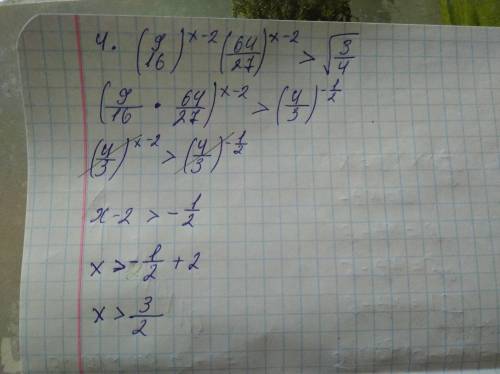 4. (9/16)^x-2 (64/27)^x-2 > √3/4
(9/16 · 64/27)^x-2 > (4/3)^-1/2
(4/3)^x-2 > (4/3)^-1/2
x-2 > -1/2
x > -1/2 + 2
x > 3/2